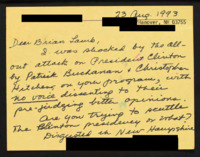 23 Aug. 1993
Hanover, NH 03755
Dear Brian Lamb,
I was shocked by the all-
out attack on President Clinton
by Patrick Buchanan & Christopher
Hitchens on your program, with
no voice dissenting to their
pre-judging bitter opinions.
Are you trying to scuttle
the Clinton presidency or what?
Disgusted in New Hampshire